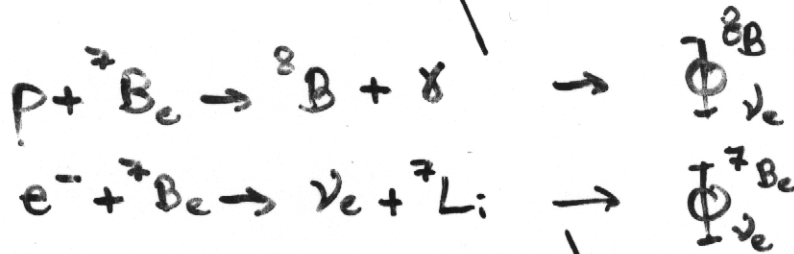 p + ⁷Be → ⁸B + γ → Φ^{⁸B}_{νe}
e⁻ + ⁷Be → νe + ⁷Li → Φ^{⁷Be}_{νe}